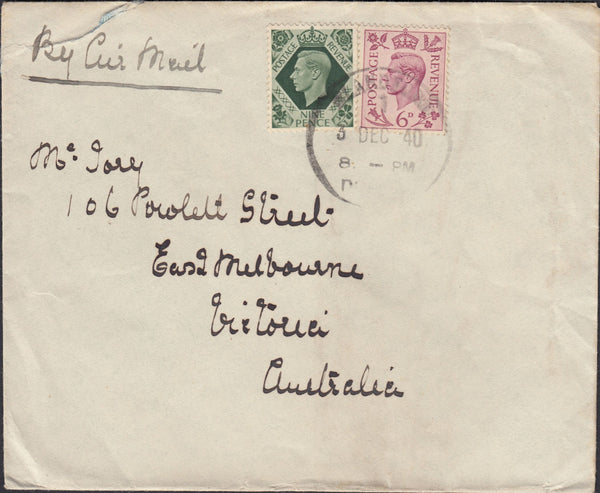 By Air Mail
POSTAGE REVENUE
NINE
PENCE
POSTAGE REVENUE
6D
3 DEC 40
8 — PM
Mr Ivey
106 Powlett Street
East Melbourne
Victoria
Australia